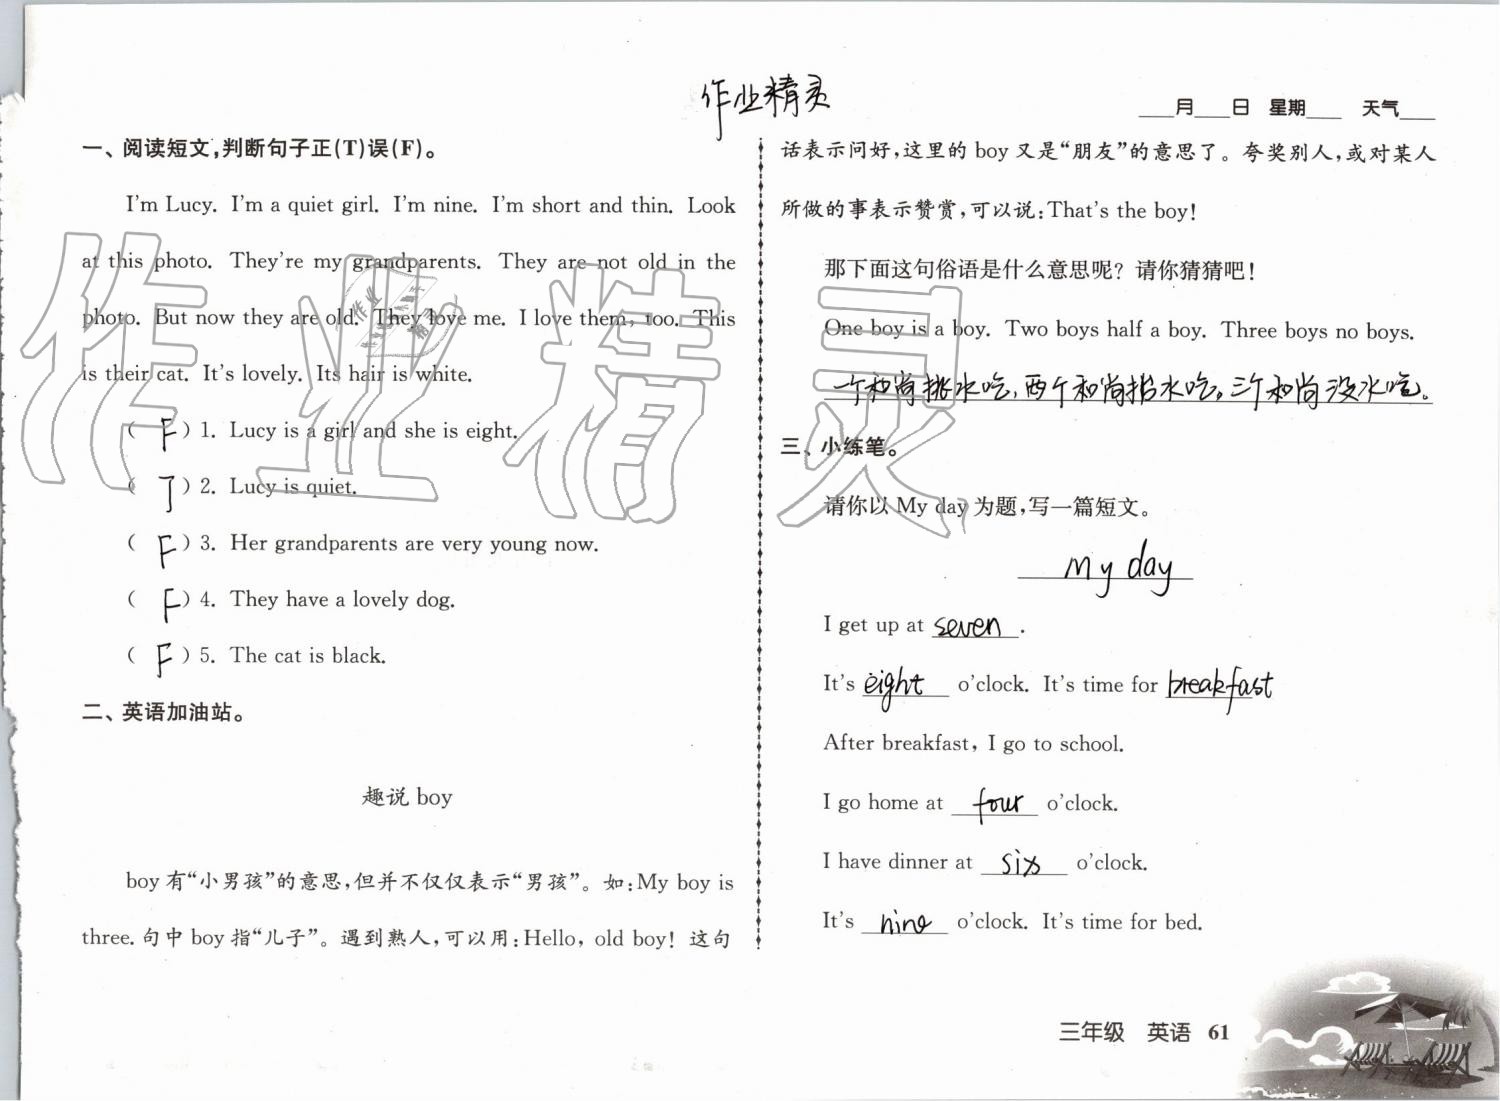 作业精灵
___月___日 星期___ 天气___
一、阅读短文,判断句子正(T)误(F)。
I'm Lucy. I'm a quiet girl. I'm nine. I'm short and thin. Look
at this photo. They're my grandparents. They are not old in the
photo. But now they are old. They love me. I love them, too. This
is their cat. It's lovely. Its hair is white.
( F ) 1. Lucy is a girl and she is eight.
( T ) 2. Lucy is quiet.
( F ) 3. Her grandparents are very young now.
( F ) 4. They have a lovely dog.
( F ) 5. The cat is black.
二、英语加油站。
趣说 boy
boy 有“小男孩”的意思,但并不仅仅表示“男孩”。如:My boy is
three. 句中 boy 指“儿子”。遇到熟人,可以用:Hello, old boy! 这句
话表示问好,这里的 boy 又是“朋友”的意思了。夸奖别人,或对某人
所做的事表示赞赏,可以说:That's the boy!
那下面这句俗语是什么意思呢? 请你猜猜吧!
One boy is a boy. Two boys half a boy. Three boys no boys.
一个和尚挑水吃,两个和尚抬水吃。三个和尚没水吃。
三、小练笔。
请你以 My day 为题,写一篇短文。
My day
I get up at seven.
It's eight o'clock. It's time for breakfast
After breakfast, I go to school.
I go home at four o'clock.
I have dinner at six o'clock.
It's nine o'clock. It's time for bed.
三年级 英语 61
作业精灵